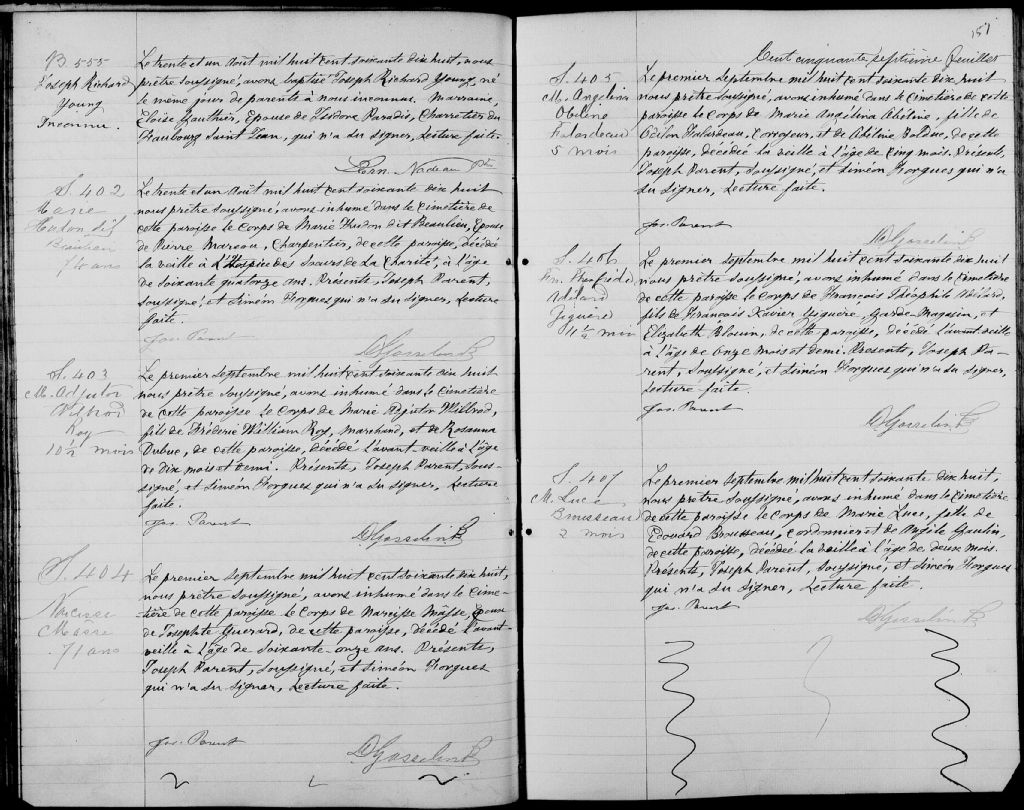 B 555
Joseph Richard
Young
Inconnu.
Le trente et un août mil huit cent soixante dix huit, nous
prêtre soussigné, avons baptisé Joseph Richard Young, né
le même jour de parents à nous inconnus. Marraine,
Eloïse Gauthier, Epouse de Isidore Paradis, Charretier du
Fraubourg Saint Jean, qui n'a su signer, Lecture faite.
Ern. Nadeau Ptre
S. 402
Marie
Hudon dit
Beaulieu
74 ans
Le trente et un août mil huit cent soixante dix huit
nous prêtre soussigné, avons inhumé dans le cimetière de
cette paroisse le corps de Marie Hudon dit Beaulieu, Epouse
de Pierre Marcau, Charpentier, de cette paroisse, décédé
la veille à l'Hospice des Soeurs de La Charité, à l'âge
de soixante quatorze ans. Présents, Joseph Parent,
soussigné, et Siméon Forgues qui n'a su signer, Lecture
faite.
Jos. Parent
DGosselin Pt
S. 403
M. Adjutor
Wilbrod
Roy
10 1/2 mois
Le premier septembre mil huit cent soixante dix huit
nous prêtre soussigné, avons inhumé dans le cimetière
de cette paroisse le corps de Marie Adjutor Wilbrod,
fils de Fréderic William Roy, Marchand, et de Rosanna
Dubuc, de cette paroisse, décédé l'avant-veille à l'âge
de dix mois et demi. Présents, Joseph Parent, sous-
signé, et Siméon Forgues qui n'a su signer, Lecture
faite.
Jos. Parent
DGosselin Pt
S. 404
Narcisse
Masse
71 ans
Le premier septembre mil huit cent soixante dix huit,
nous prêtre soussigné, avons inhumé dans le cime-
tière de cette paroisse le corps de Narcisse Masse, Epoux
de Josephte Guerard, de cette paroisse, décédé l'avant-
veille à l'âge de soixante-onze ans. Présents,
Joseph Parent, soussigné, et Siméon Forgues
qui n'a su signer, Lecture faite.
Jos. Parent
DGosselin Pt
157
Cent cinquante septième feuillet
S. 405
M. Angelina
Obeline
Falardeau
5 mois
Le premier septembre mil huit cent soixante dix huit
nous prêtre soussigné, avons inhumé dans le cimetière de cette
paroisse le corps de Marie Angelina Abeline, fille de
Odilon Falardeau, Corroyeur, et de Adeline Bolduc, de cette
paroisse, décédé la veille à l'âge de cinq mois. Présents,
Joseph Parent, soussigné, et Siméon Forgues qui n'a
su signer, Lecture faite.
Jos. Parent
DGosselin Pt
S. 406
Adélard
Giguère
11 1/2 mois
Le premier septembre mil huit cent soixante dix huit
nous prêtre soussigné, avons inhumé dans le cimetière
de cette paroisse le corps de François Théophile Adélard,
fils de François Xavier Giguère, Garde-Magasin, et
Elizabeth Blouin, de cette paroisse, décédé l'avant veille
à l'âge de onze mois et demi. Présents, Joseph Pa-
rent, soussigné, et Siméon Forgues qui n'a su signer,
Lecture faite.
Jos. Parent
DGosselin Pt
S. 407
M. Luce
Brousseau
2 mois
Le premier septembre mil huit cent soixante dix huit,
nous prêtre soussigné, avons inhumé dans le cimetière
de cette paroisse le corps de Marie Luce, fille de
Edouard Brousseau, cordonnier et de Angèle Gaulin,
de cette paroisse, décédée la veille à l'âge de deux mois.
Présents, Joseph Parent, soussigné, et Siméon Forgues
qui n'a su signer, Lecture faite.
Jos. Parent
DGosselin Pt